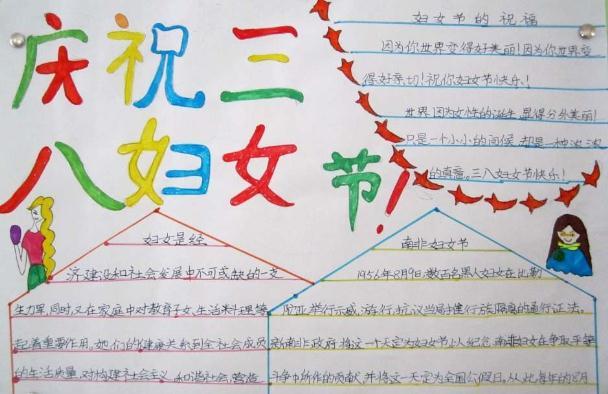 庆祝三
八妇女节!
妇女节的祝福
因为你世界变得好美丽!因为你世界变
得好亲切!祝你妇女节快乐!
世界因为女性的诞生显得分外美丽!
只是一个小小的问候,却是一种浓浓
的真蓿。三八妇女节快乐!
妇女是经
济建设和社会发展中不可或缺的一支
生力军,同时,又在家庭中对教育子女、生活料理等
起着重要作用,她们的健康关系到全社会成员
的生活质量,对构建社会主义和谐社会,营造
南非妇女节
1956年8月9日,数百名黑人妇女在比勒
陀亚,举行示威,游行,抗议当局推行族隔离的通行证法。
新南非政府将这一个天定为妇女节上人纪念,南非妇女在争取平等
斗争中所作的贡献,并将这一天定为全国公假日,从此每年的8月